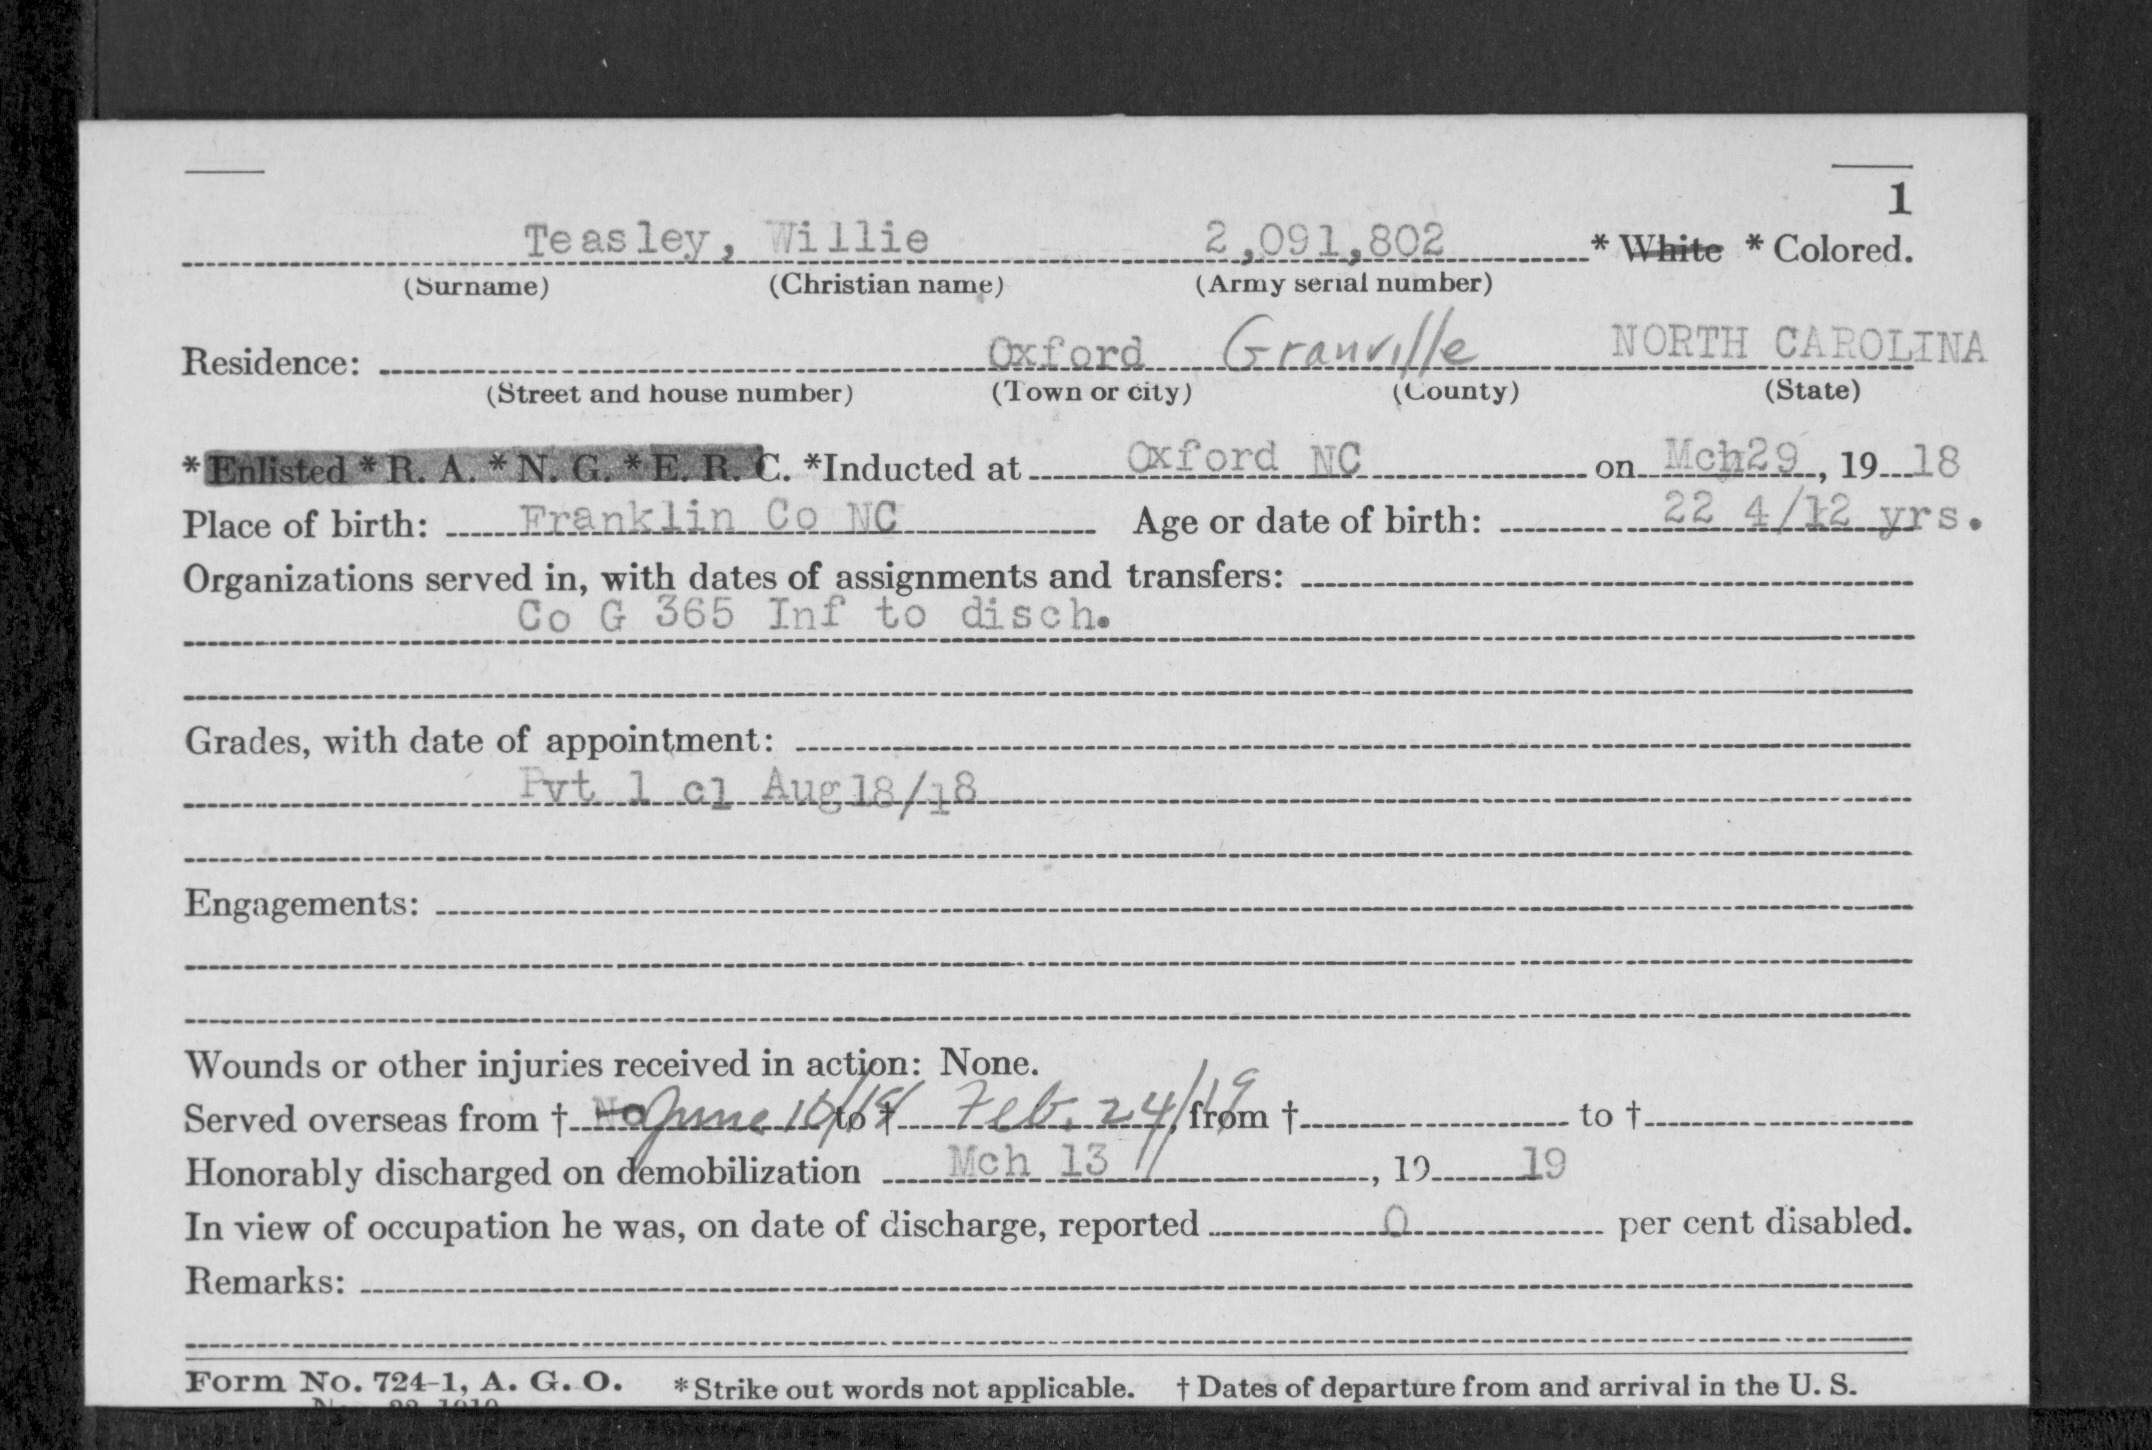 1
Teasley, Willie 2,091,802 * White * Colored.
(Surname) (Christian name) (Army serial number)
Residence: Oxford Granville NORTH CAROLINA
(Street and house number) (Town or city) (County) (State)
* Enlisted * R. A. * N. G. * E. R. C. *Inducted at Oxford NC on Mch29, 19 18
Place of birth: Franklin Co NC Age or date of birth: 22 4/12 yrs.
Organizations served in, with dates of assignments and transfers:
Co G 365 Inf to disch.
Grades, with date of appointment:
Pvt 1 cl Aug18/18
Engagements:
Wounds or other injuries received in action: None.
Served overseas from † No June 10/18 to † Feb. 24/19, from † to †
Honorably discharged on demobilization Mch 13, 19 19
In view of occupation he was, on date of discharge, reported 0 per cent disabled.
Remarks:
Form No. 724-1, A. G. O. * Strike out words not applicable. † Dates of departure from and arrival in the U. S.